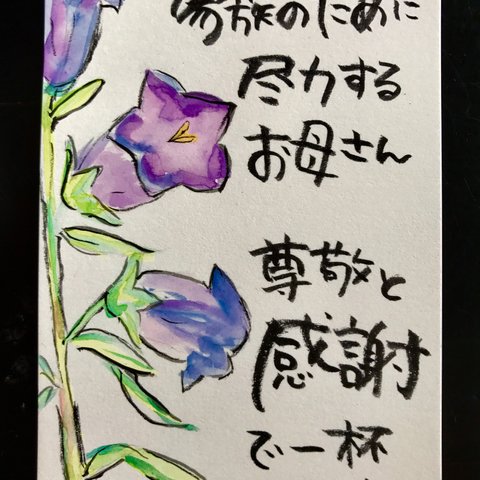 家族のために
尽力する
お母さん
尊敬と
感謝
で一杯